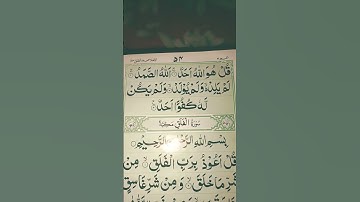 قُلْ هُوَ اللّٰهُ اَحَدٌ ۚ اَللّٰهُ الصَّمَدُ ۚ
لَمْ يَلِدْ ۙ وَلَمْ يُوْلَدْ ۙ وَلَمْ يَكُنْ
لَّهٗ كُفُوًا اَحَدٌ
سُوْرَةُ الْفَلَقِ مَكِّيَّةٌ
بِسْمِ اللّٰهِ الرَّحْمٰنِ الرَّحِيْمِ
قُلْ اَعُوْذُ بِرَبِّ الْفَلَقِ ۙ مِنْ
شَرِّ مَا خَلَقَ ۙ وَ مِنْ شَرِّ غَاسِقٍ